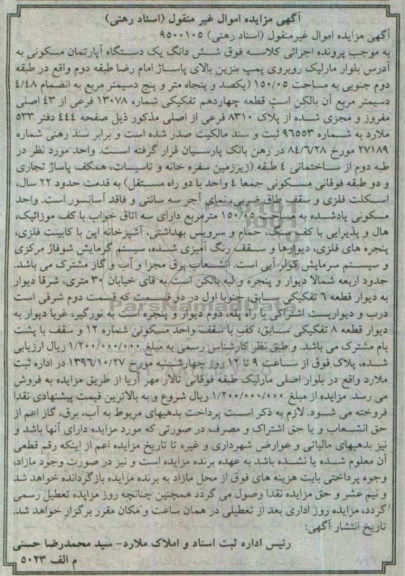 آگهی مزایده اموال غیر منقول (اسناد رهنی)
آگهی مزایده اموال غیرمنقول (اسناد رهنی) ۹۵۰۰۱۰۵
به موجب پرونده اجرائی کلاسه فوق شش دانگ یک دستگاه آپارتمان مسکونی به
آدرس بلوار مارلیک روبروی پمپ بنزین بالای پاساژ امام رضا طبقه دوم واقع در طبقه
دوم جنوبی به مساحت ۱۵۰/۰۵ (یکصد و پنجاه متر و پنج دسیمتر مربع به انضمام ۴/۴۸
دسیمتر مربع آن بالکن است قطعه چهاردهم تفکیکی شماره ۱۳۰۷۸ فرعی از ۴۳ اصلی
مفروز و مجزی شده از پلاک ۸۳۱۰ فرعی از اصلی مذکور ذیل صفحه ۴۴۴ دفتر ۵۳۳
ملارد به شماره ۹۶۵۵۳ ثبت و سند مالکیت صدر شده است و برابر سند رهنی شماره
۲۷۱۸۹ مورخ ۸۴/۶/۲۸ در رهن بانک پارسیان قرار گرفته است. واحد مورد نظر در
طبه دوم از ساختمانی ۴ طبقه (زیرزمین سفره خانه و تاسیسات، همکف پاساژ تجاری
و دو طبقه فوقانی مسکونی جمعا ۴ واحد با دو راه مستقل) به قدمت حدود ۲۲ سال،
اسکلت فلزی و سقف طاق ضربی، نمای آجر سه سانتی و فاقد آسانسور است. واحد
مسکونی یادشده به مساحت ۱۵۰/۰۵ مترمربع دارای سه اتاق خواب با کف موزائیک،
هال و پذیرایی با کف سنگ، حمام و سرویس بهداشتی، آشپزخانه اپن با کابینت فلزی،
پنجره های فلزی، دیوارها و سقف رنگ آمیزی شده، سیستم گرمایش شوفاژ مرکزی
و سیستم سرمایش کولر آبی است. انشعاب برق مجزا و آب و گاز مشترک می باشد.
حدود اربعه شمالا دیوار و پنجره و لبه بالکن است به فای خیابان ۳۰ متری، شرقا دیوار
به دیوار قطعه ٦ تفکیکی سابق، جنوبا اول در دو قسمت که قسمت دوم شرقی است
درب و دیواریست اشتراکی به راه پله، دوم دیوار و پنجره است به نورگیر، غربا دیوار به
دیوار قطعه ۸ تفکیکی سابق، کف با سقف واحد مسکونی شماره ۱۲ و سقف با پشت
بام مشترک می باشد. و طبق نظر کارشناس رسمی به مبلغ ۱/۲۰۰/۰۰۰/۰۰۰ ریال ارزیابی
شده، پلاک فوق از ساعت ۹ تا ۱۲ روز چهارشنبه مورخ ۱۳۹۶/۱۰/۲۷ در اداره ثبت
ملارد واقع در بلوار اصلی مارلیک طبقه فوقانی تالار مهر آریا از طریق مزایده به فروش
می رسد. مزایده از مبلغ ۱/۲۰۰/۰۰۰/۰۰۰ ریال شروع و به بالاترین قیمت پیشنهادی نقدا
فروخته می شود. لازم به ذکر است پرداخت بدهیهای مربوط به آب، برق، گاز اعم از
حق انشعاب و یا حق اشتراک و مصرف در صورتی که مورد مزایده دارای آنها باشد و
نیز بدهیهای مالیاتی و عوارض شهرداری و غیره تا تاریخ مزایده اعم از اینکه رقم قطعی
آن معلوم شده یا نشده باشد به عهده برنده مزایده است و نیز در صورت وجود مازاد،
وجوه پرداختی بابت هزینه های فوق از محل مازاد به برنده مزایده بازگردانده خواهد شد
و نیم عشر و حق مزایده نقدا وصول می گردد همچنین چنانچه روز مزایده تعطیل رسمی
گردد، مزایده روز اداری بعد از تعطیلی در همان ساعت و مکان مقرر برگزار خواهد شد.
تاریخ انتشار آگهی:
رئیس اداره ثبت اسناد و املاک ملارد- سید محمدرضا حسنی
م الف ۵۰۲۳